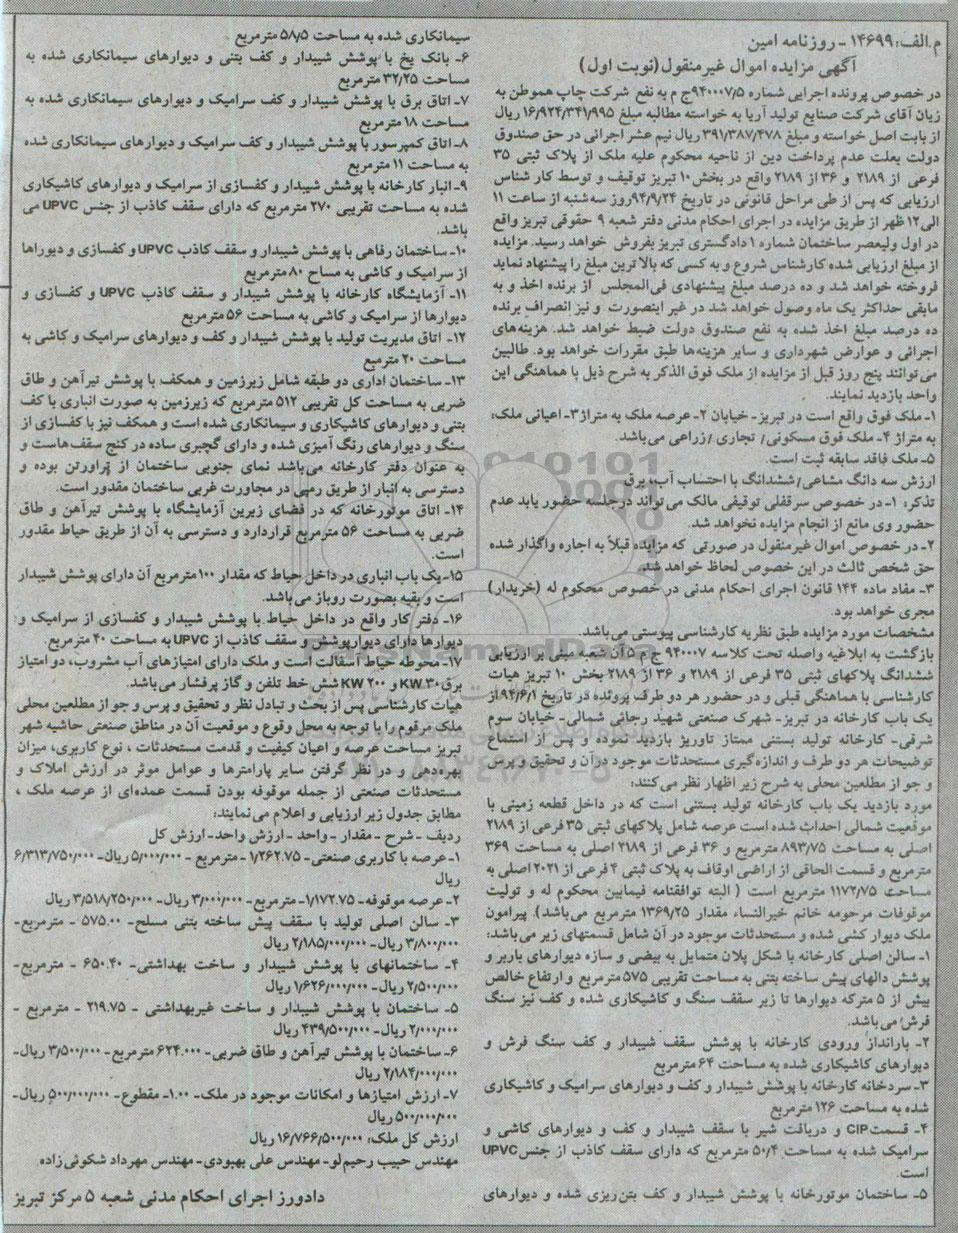 م.الف: ۱۴۶۹۹ - روزنامه امین
آگهی مزایده اموال غیرمنقول(نوبت اول)
در خصوص پرونده اجرایی شماره ۹۴۰۰۰۷/۵ج م به نفع شرکت چاپ هموطن به
زیان آقای شرکت صنایع تولید آریا به خواسته مطالبه مبلغ ۱۶/۹۲۴/۳۴۱/۹۹۵ ریال
از بابت اصل خواسته و مبلغ ۳۹۱/۳۸۷/۴۷۸ ریال نیم عشر اجرائی در حق صندوق
دولت بعلت عدم پرداخت دین از ناحیه محکوم علیه ملک از پلاک ثبتی ۳۵
فرعی از ۲۱۸۹ و ۳۶ از ۲۱۸۹ واقع در بخش ۱۰ تبریز توقیف و توسط کار شناس
ارزیابی که پس از طی مراحل قانونی در تاریخ ۹۴/۹/۲۴روز سه شنبه از ساعت ۱۱
الی ۱۲ ظهر از طریق مزایده در اجرای احکام مدنی دفتر شعبه ۹ حقوقی تبریز واقع
در اول ولیعصر ساختمان شماره ۱ دادگستری تبریز بفروش خواهد رسید. مزایده
از مبلغ ارزیابی شده کارشناس شروع و به کسی که بالا ترین مبلغ را پیشنهاد نماید
فروخته خواهد شد و ده درصد مبلغ پیشنهادی فی‌المجلس از برنده اخذ و به
مابقی حداکثر یک ماه وصول خواهد شد در غیر اینصورت و نیز انصراف برنده
ده درصد مبلغ اخذ شده به نفع صندوق دولت ضبط خواهد شد. هزینه‌های
اجرائی و عوارض شهرداری و سایر هزینه‌ها طبق مقررات خواهد بود. طالبین
می‌توانند پنج روز قبل از مزایده از ملک فوق الذکر به شرح ذیل با هماهنگی این
واحد بازدید نمایند.
۱- ملک فوق واقع است در تبریز- خیابان ۲- عرصه ملک به متراژ ۳- اعیانی ملک:
به متراژ ۴- ملک فوق مسکونی/ تجاری /زراعی می‌باشد.
۵- ملک فاقد سابقه ثبت است.
ارزش سه دانگ مشاعی/ششدانگ با احتساب آب، برق
تذکر: ۱- در خصوص سرقفلی توقیفی مالک می‌تواند در جلسه حضور یابد عدم
حضور وی مانع از انجام مزایده نخواهد شد.
۲- در خصوص اموال غیرمنقول در صورتی که مزایده قبلاً به اجاره واگذار شده
حق شخص ثالث در این خصوص لحاظ خواهد شد.
۳- مفاد ماده ۱۴۴ قانون اجرای احکام مدنی در خصوص محکوم له (خریدار)
مجری خواهد بود.
مشخصات مورد مزایده طبق نظریه کارشناسی پیوستی می‌باشد.
بازگشت به ابلاغیه واصله تحت کلاسه ۹۴۰۰۰۷ ج م ۵ آن شعبه مبنی بر ارزیابی
ششدانگ پلاکهای ثبتی ۳۵ فرعی از ۲۱۸۹ و ۳۶ از ۲۱۸۹ بخش ۱۰ تبریز هیات
کارشناسی با هماهنگی قبلی و در حضور هر دو طرف پرونده در تاریخ ۹۴/۶/۱ از
یک باب کارخانه در تبریز- شهرک صنعتی شهید رجائی شمالی- خیابان سوم
شرقی- کارخانه تولید بستنی ممتاز تاوریژ بازدید نموده و پس از استماع
توضیحات هر دو طرف و اندازه‌گیری مستحدثات موجود در آن و تحقیق و پرس
و جو از مطلعین محلی به شرح زیر اظهار نظر می‌کنند:
مورد بازدید یک باب کارخانه تولید بستنی است که در داخل قطعه زمینی با
موقعیت شمالی احداث شده است عرصه شامل پلاکهای ثبتی ۳۵ فرعی از ۲۱۸۹
اصلی به مساحت ۸۹۳/۷۵ مترمربع و ۳۶ فرعی از ۲۱۸۹ اصلی به مساحت ۳۶۹
مترمربع و قسمت الحاقی از اراضی اوقاف به پلاک ثبتی ۴ فرعی از ۲۰۲۱ اصلی به
مساحت ۱۱۷۲/۷۵ مترمربع است ( البته توافقنامه فیمابین محکوم له و تولیت
موقوفات مرحومه خانم خیرالنساء مقدار ۱۳۶۹/۲۵ مترمربع می‌باشد). پیرامون
ملک دیوار کشی شده و مستحدثات موجود در آن شامل قسمتهای زیر می‌باشد:
۱- سالن اصلی کارخانه با شکل پلان متمایل به بیضی و سازه دیوارهای باربر و
پوشش دالهای پیش ساخته بتنی به مساحت تقریبی ۵۷۵ مترمربع و ارتفاع خالص
بیش از ۵ مترکه دیوارها تا زیر سقف سنگ و کاشیکاری شده و کف نیز سنگ
فرش می‌باشد.
۲- بارانداز ورودی کارخانه با پوشش سقف شیبدار و کف سنگ فرش و
دیوارهای کاشیکاری شده به مساحت ۶۴ مترمربع
۳- سردخانه کارخانه با پوشش شیبدار و کف و دیوارهای سرامیک و کاشیکاری
شده به مساحت ۱۲۶ مترمربع
۴- قسمت CIP و دریافت شیر با سقف شیبدار و کف و دیوارهای کاشی و
سرامیک شده به مساحت ۵۰/۴ مترمربع که دارای سقف کاذب از جنس UPVC
است.
۵- ساختمان موتورخانه با پوشش شیبدار و کف بتن‌ریزی شده و دیوارهای
سیمانکاری شده به مساحت ۵۸/۵ مترمربع
۶- بانک یخ با پوشش شیبدار و کف بتنی و دیوارهای سیمانکاری شده به
مساحت ۳۲/۲۵ مترمربع
۷- اتاق برق با پوشش شیبدار و کف سرامیک و دیوارهای سیمانکاری شده به
مساحت ۱۸ مترمربع
۸- اتاق کمپرسور با پوشش شیبدار و کف سرامیک و دیوارهای سیمانکاری شده
به مساحت ۱۱ مترمربع
۹- انبار کارخانه با پوشش شیبدار و کفسازی از سرامیک و دیوارهای کاشیکاری
شده به مساحت تقریبی ۲۷۰ مترمربع که دارای سقف کاذب از جنس UPVC می
باشد.
۱۰- ساختمان رفاهی با پوشش شیبدار و سقف کاذب UPVC و کفسازی و دیوراها
از سرامیک و کاشی به مساح ۸۰ مترمربع
۱۱- آزمایشگاه کارخانه با پوشش شیبدار و سقف کاذب UPVC و کفسازی و
دیوارها از سرامیک و کاشی به مساحت ۵۶ مترمربع
۱۲- اتاق مدیریت تولید با پوشش شیبدار و کف و دیوارهای سرامیک و کاشی به
مساحت ۲۰ مترمبع
۱۳- ساختمان اداری دو طبقه شامل زیرزمین و همکف با پوشش تیرآهن و طاق
ضربی به مساحت کل تقریبی ۵۱۲ مترمربع که زیرزمین به صورت انباری با کف
بتنی و دیوارهای کاشیکاری و سیمانکاری شده است و همکف نیز با کفسازی از
سنگ و دیوارهای رنگ آمیزی شده و دارای گچبری ساده در کنج سقف‌هاست و
به عنوان دفتر کارخانه می‌باشد نمای جنوبی ساختمان از تراورتن بوده و
دسترسی به انبار از طریق رمپی در مجاورت غربی ساختمان مقدور است.
۱۴- اتاق موتورخانه که در فضای زیرین آزمایشگاه با پوشش تیرآهن و طاق
ضربی به مساحت ۵۶ مترمربع قراردارد و دسترسی به آن از طریق حیاط مقدور
است.
۱۵- یک باب انباری در داخل حیاط که مقدار ۱۰۰ مترمربع آن دارای پوشش شیبدار
است و بقیه بصورت روباز می‌باشد.
۱۶- دفتر کار واقع در داخل حیاط با پوشش شیبدار و کفسازی از سرامیک و
دیوارها دارای دیوارپوشش و سقف کاذب از UPVC به مساحت ۴۰ مترمربع.
۱۷- محوطه حیاط آسفالت است و ملک دارای امتیازهای آب مشروب، دو امتیاز
برق ۳۰ KW و ۲۰۰ KW شش خط تلفن و گاز پرفشار می‌باشد.
هیات کارشناسی پس از بحث و تبادل نظر و تحقیق و پرس و جو از مطلعین محلی
ملک مرقوم را با توجه به محل وقوع و موقعیت آن در مناطق صنعتی حاشیه شهر
تبریز مساحت عرصه و اعیان کیفیت و قدمت مستحدثات ، نوع کاربری، میزان
بهره‌دهی و در نظر گرفتن سایر پارامترها و عوامل موثر در ارزش املاک و
مستحدثات صنعتی از جمله موقوفه بودن قسمت عمده‌ای از عرصه ملک ،
مطابق جدول زیر ارزیابی و اعلام می‌نمایند:
ردیف - شرح - مقدار - واحد - ارزش واحد- ارزش کل
۱- عرصه با کاربری صنعتی- ۱/۲۶۲.۷۵ - مترمربع - ۵/۰۰۰/۰۰۰ ریال- ۶/۳۱۳/۷۵۰/۰۰۰
ریال
۲- عرصه موقوفه- ۱/۱۷۲.۷۵- مترمربع- ۳/۰۰۰/۰۰۰ ریال- ۳/۵۱۸/۲۵۰/۰۰۰ ریال
۳- سالن اصلی تولید با سقف پیش ساخته بتنی مسلح- ۵۷۵.۰۰ - مترمربع-
۳/۸۰۰/۰۰۰ ریال- ۲/۱۸۵/۰۰۰/۰۰۰ ریال
۴- ساختمانهای با پوشش شیبدار و ساخت بهداشتی- ۶۵۰.۴۰ - مترمربع-
۲/۵۰۰/۰۰۰ ریال- ۱/۶۲۶/۰۰۰/۰۰۰ ریال
۵- ساختمان با پوشش شیبدار و ساخت غیربهداشتی - ۲۱۹.۷۵ - مترمربع -
۲/۰۰۰/۰۰۰ ریال- ۴۳۹/۵۰۰/۰۰۰ ریال
۶- ساختمان با پوشش تیرآهن و طاق ضربی- ۶۲۴.۰۰۰ مترمربع- ۳/۵۰۰/۰۰۰ ریال-
۲/۱۸۴/۰۰۰/۰۰۰ ریال
۷- ارزش امتیازها و امکانات موجود در ملک- ۱.۰۰- مقطوع- ۵۰۰/۰۰۰/۰۰۰ ریال-
۵۰۰/۰۰۰/۰۰۰ ریال
ارزش کل ملک: ۱۶/۷۶۶/۵۰۰/۰۰۰ ریال
مهندس حبیب رحیم‌لو- مهندس علی بهبودی- مهندس مهرداد شکوئی‌زاده
دادورز اجرای احکام مدنی شعبه ۵ مرکز تبریز
ParsNamadData